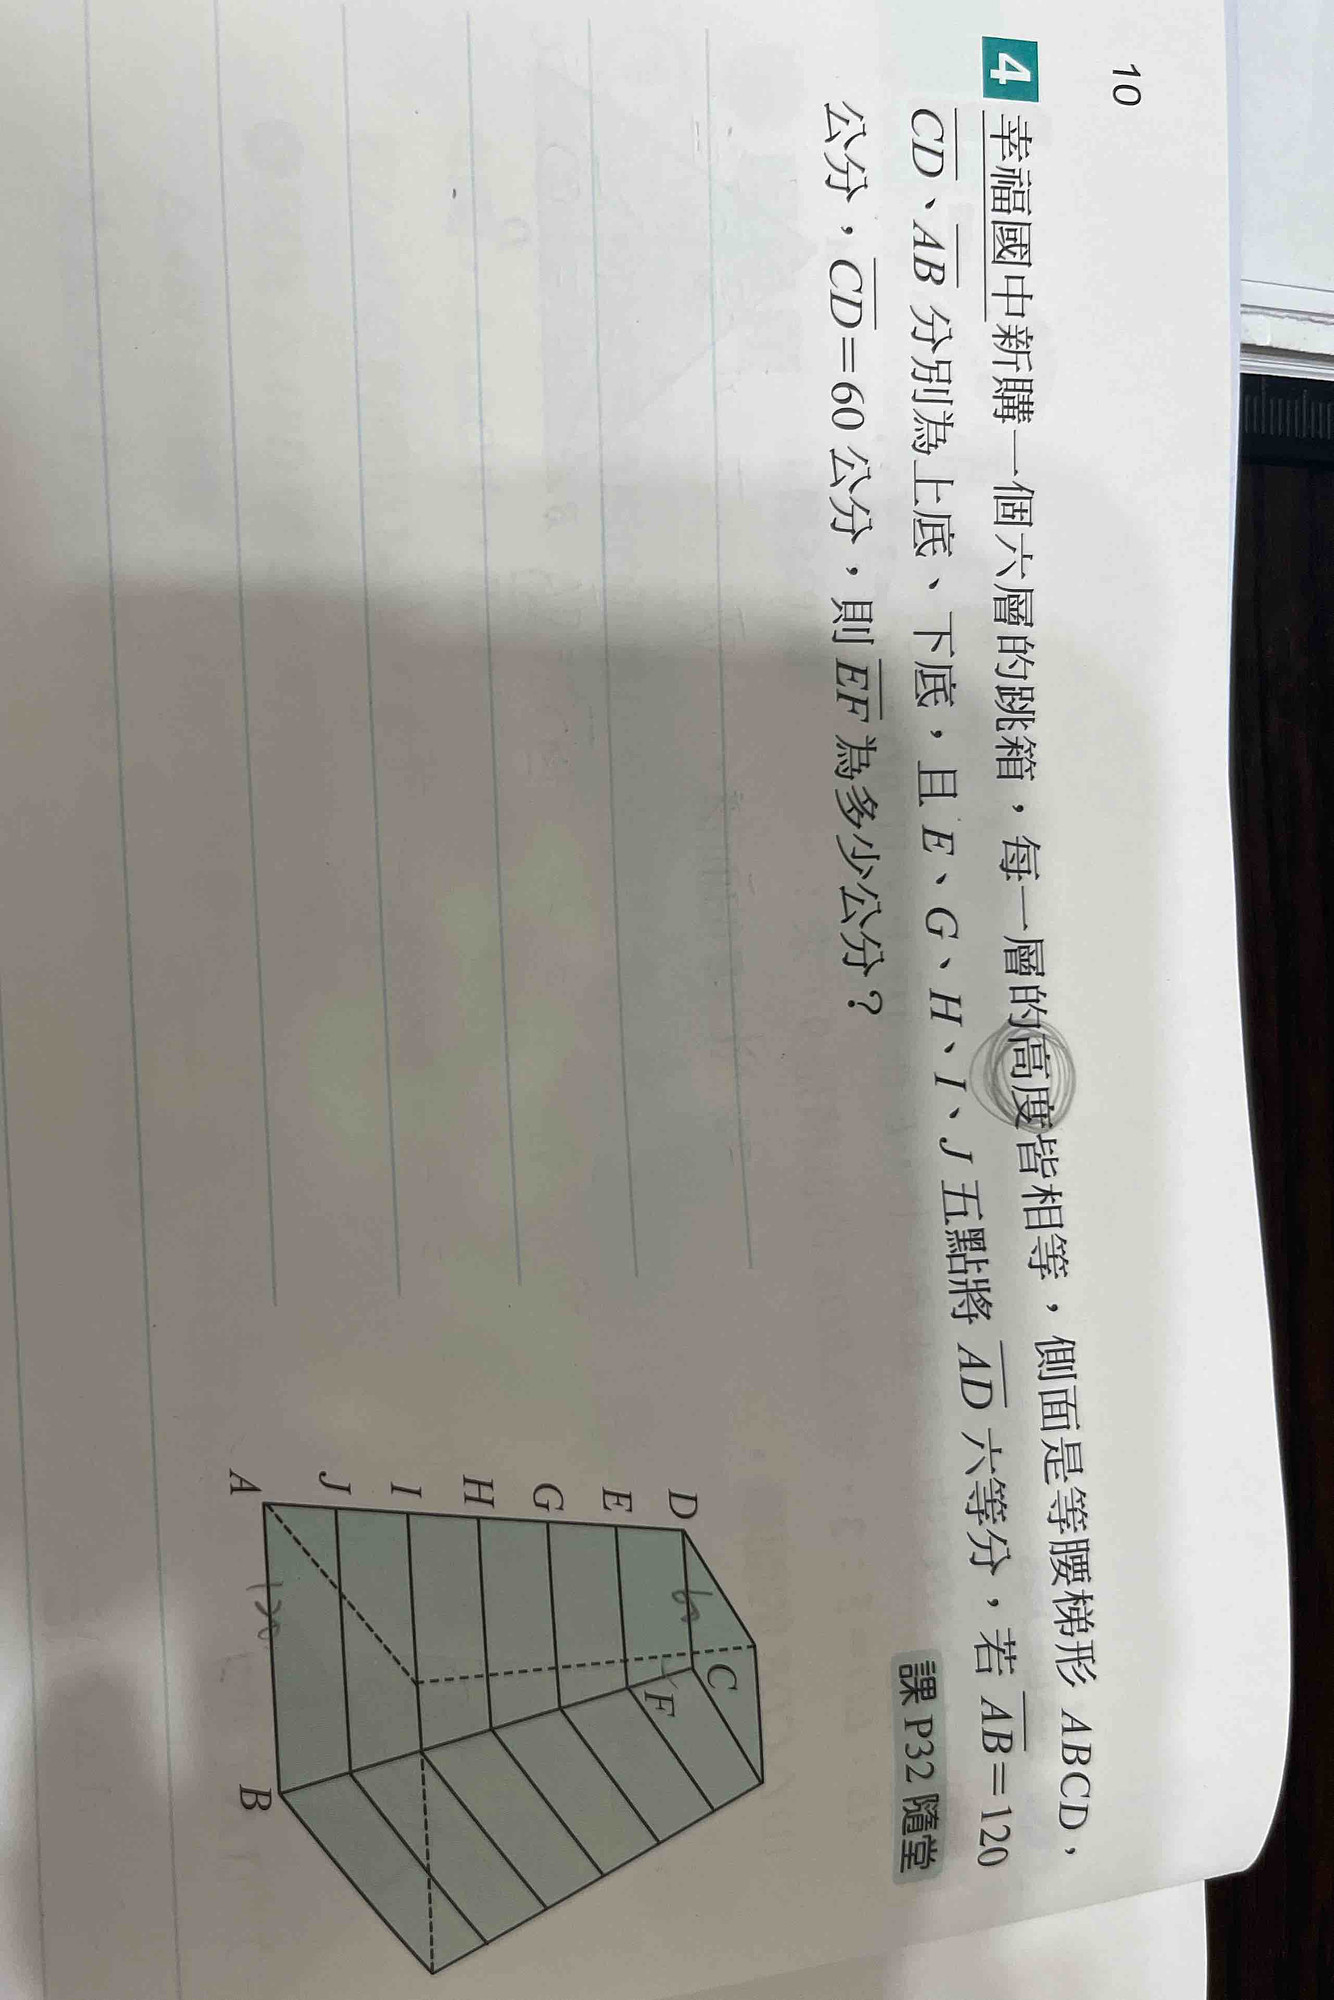 10
4 幸福國中新購一個六層的跳箱，每一層的高度皆相等，側面是等腰梯形 ABCD，
CD、AB 分別為上底、下底，且 E、G、H、I、J 五點將 AD 六等分，若 AB=120
公分，CD=60 公分，則 EF 為多少公分？
課 P32 隨堂
D
60
C
E
F
G
H
I
J
A
120
B